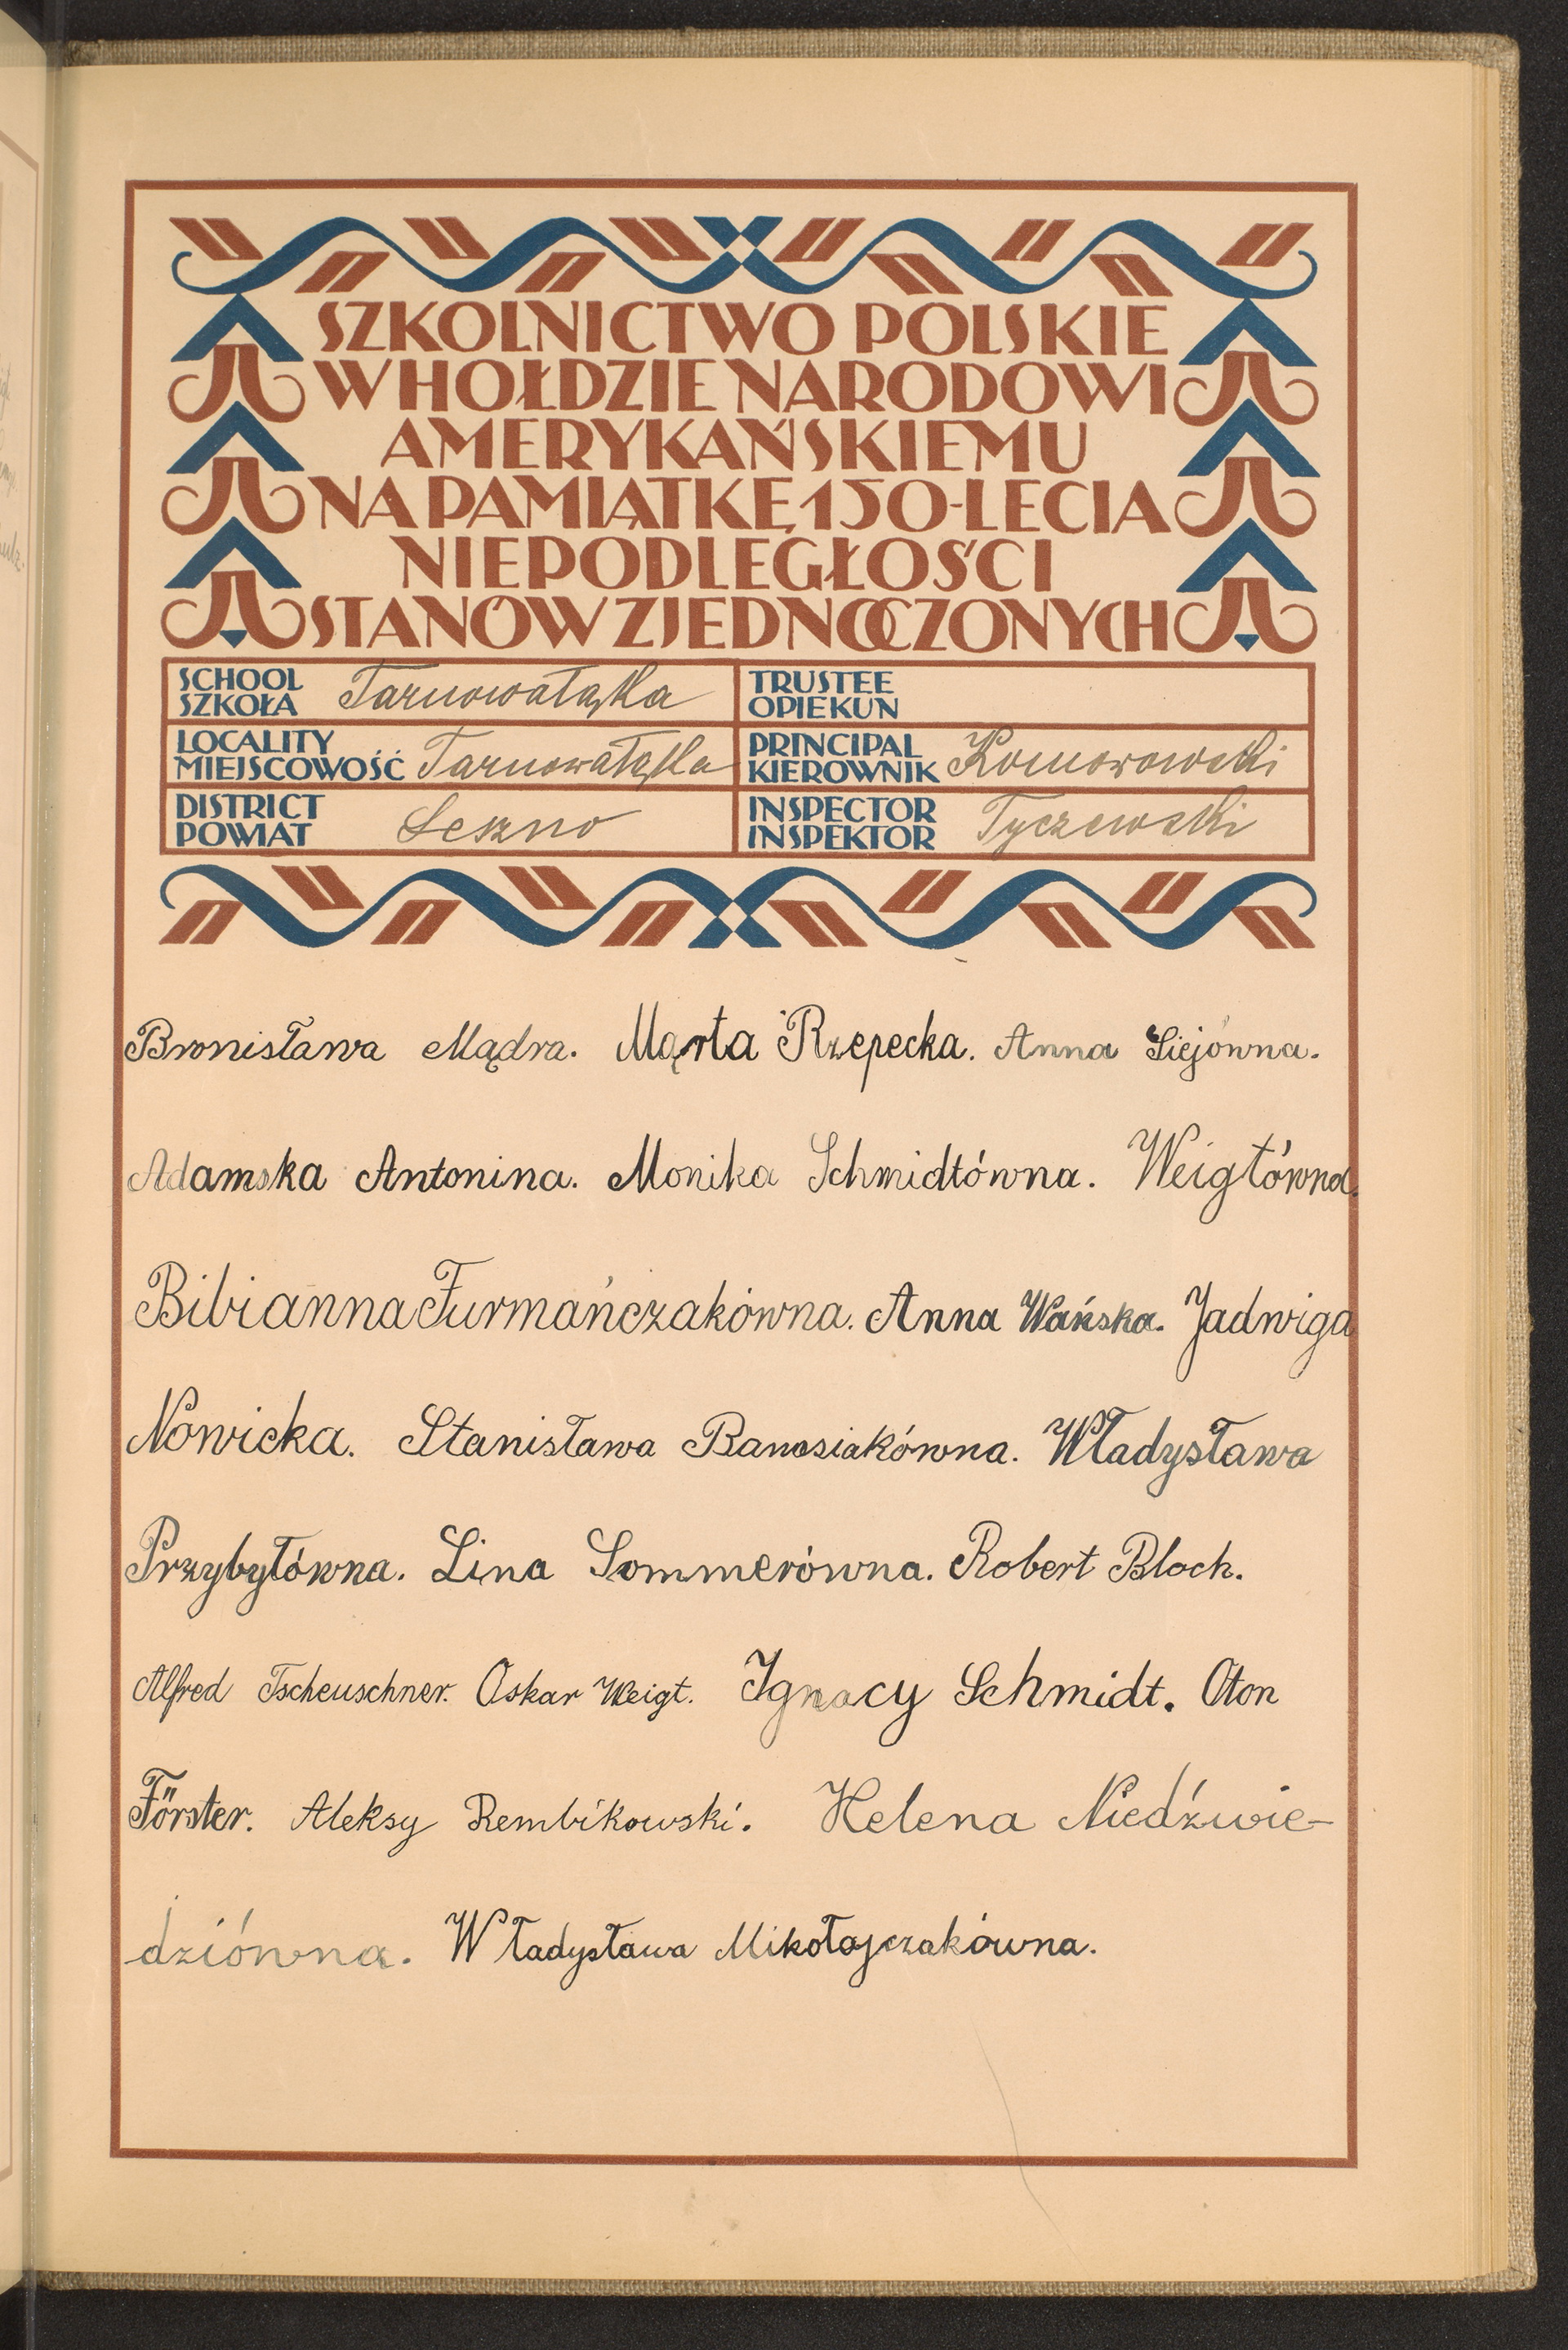 SZKOLNICTWO POLSKIE
W HOŁDZIE NARODOWI
AMERYKAŃSKIEMU
NA PAMIĄTKĘ 150-LECIA
NIEPODLEGŁOŚCI
STANÓW ZJEDNOCZONYCH
SCHOOL
SZKOŁA Tarnowałąka
TRUSTEE
OPIEKUN
LOCALITY
MIEJSCOWOŚĆ Tarnowałąka
PRINCIPAL
KIEROWNIK Komorowski
DISTRICT
POWIAT Leszno
INSPECTOR
INSPEKTOR Tyczewski
Bronisława Mądra. Marta Rzepecka. Anna Siejówna.
Adamska Antonina. Monika Schmidtówna. Weigtówna.
Bibianna Furmańczakówna. Anna Wańska. Jadwiga
Nowicka. Stanisława Banasiakówna. Władysława
Przybyłówna. Lina Sommerówna. Robert Bloch.
Alfred Tscheuschner. Oskar Weigt. Ignacy Schmidt. Oton
Förster. Aleksy Rembikowski. Helena Niedźwie-
dziówna. Władysława Mikołajczakówna.